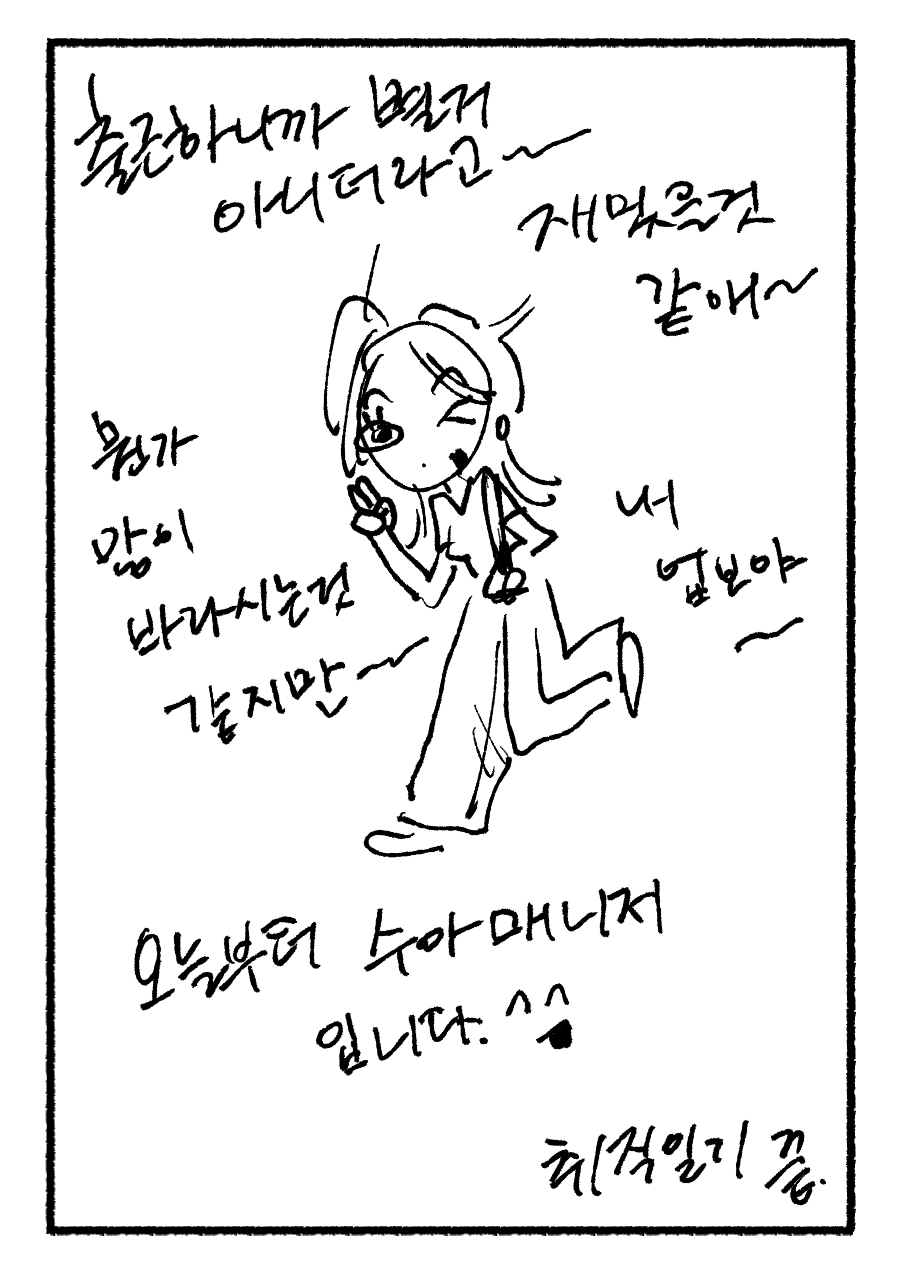 출근하니까 별거
아니더라고~
재밌을것
같애~
뭔가
많이
바라시는것
같지만~
내
업보야
~
오늘부터 수아매니저
입니다. ^^
취직일기 끝.